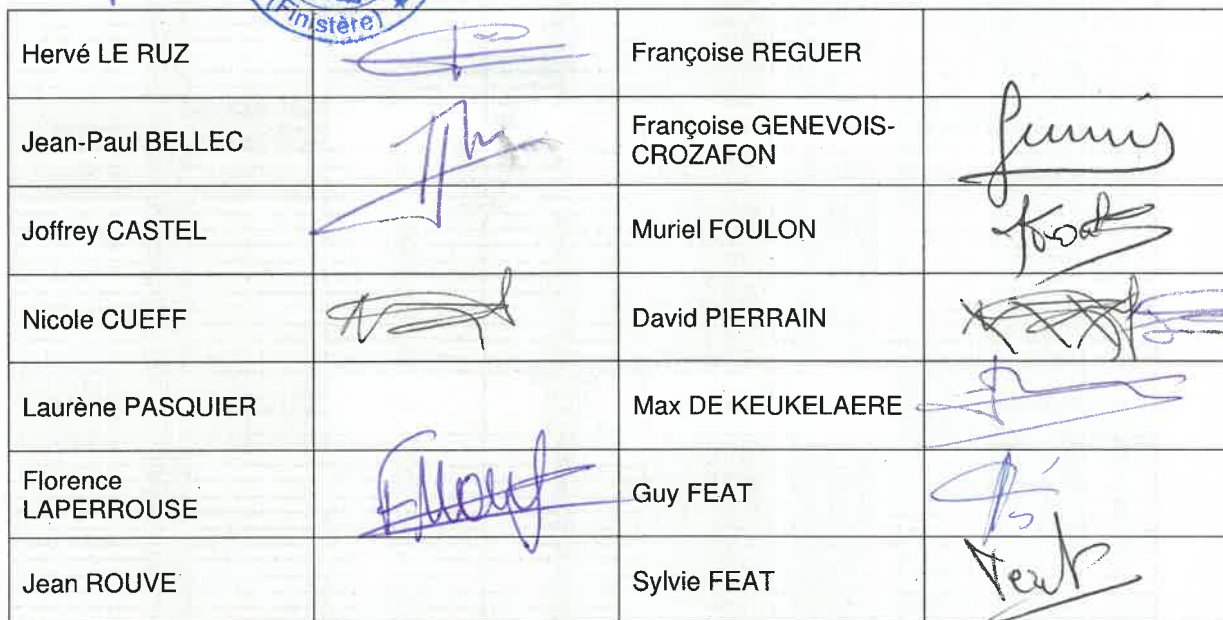 (Finistère)
Hervé LE RUZ
Françoise REGUER
Jean-Paul BELLEC
Françoise GENEVOIS-
CROZAFON
Joffrey CASTEL
Muriel FOULON
Nicole CUEFF
David PIERRAIN
Laurène PASQUIER
Max DE KEUKELAERE
Florence
LAPERROUSE
Guy FEAT
Jean ROUVE
Sylvie FEAT